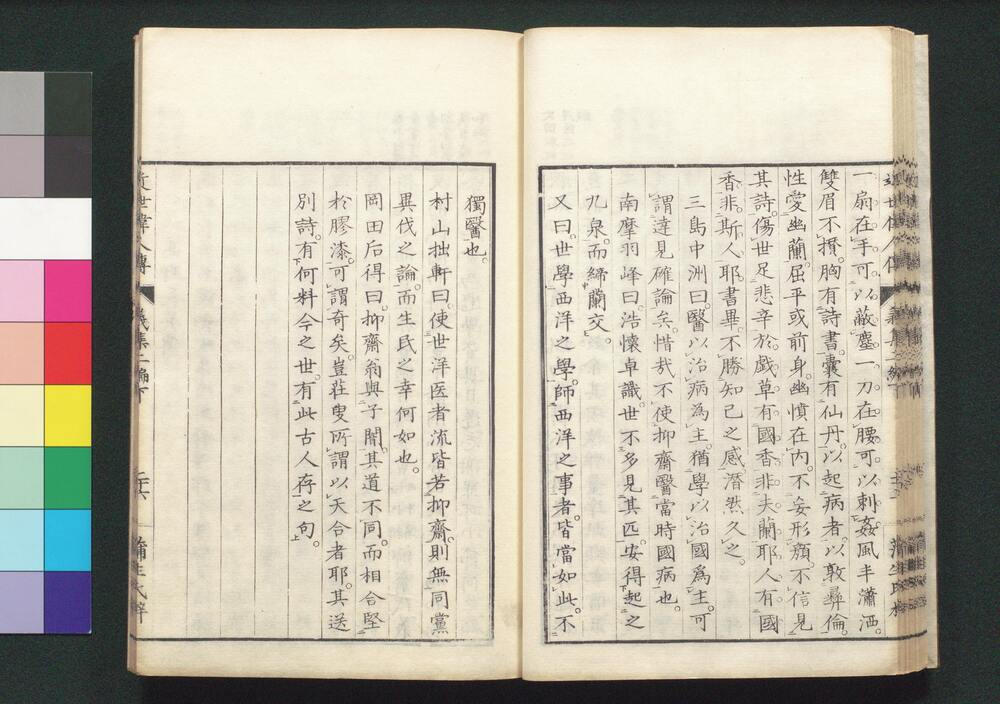 一扇在手可以蔽塵一刀在腰可以刺姦風丰瀟洒
雙眉不攢胸有詩書囊有仙丹以起病者以敦彝倫
性愛幽蘭屈平或前身幽憤在內不妄形顏不信見
其詩傷世足悲辛於戲草有國香非夫蘭耶人有國
香非斯人耶書畢不勝知己之感潛然久之
三島中洲曰醫以治病為主猶學以治國為主可
謂達見確論矣惜哉不使抑齋醫當時國病也
南摩羽峰曰浩懷卓識世不多見其匹安得起之
九泉而締蘭交
又曰世學西洋之學師西洋之事者皆當如此不
獨醫也
村山拙軒曰使世洋医者流皆若抑齋則無同黨
異伐之論而生民之幸何如也
岡田后得曰抑齋翁與子闇其道不同而相合堅
於膠漆可謂奇矣豈莊叟所謂以天合者耶其送
別詩有何料今之世有此古人存之句
近世偉人傳
義集二編下
蒲生氏梓